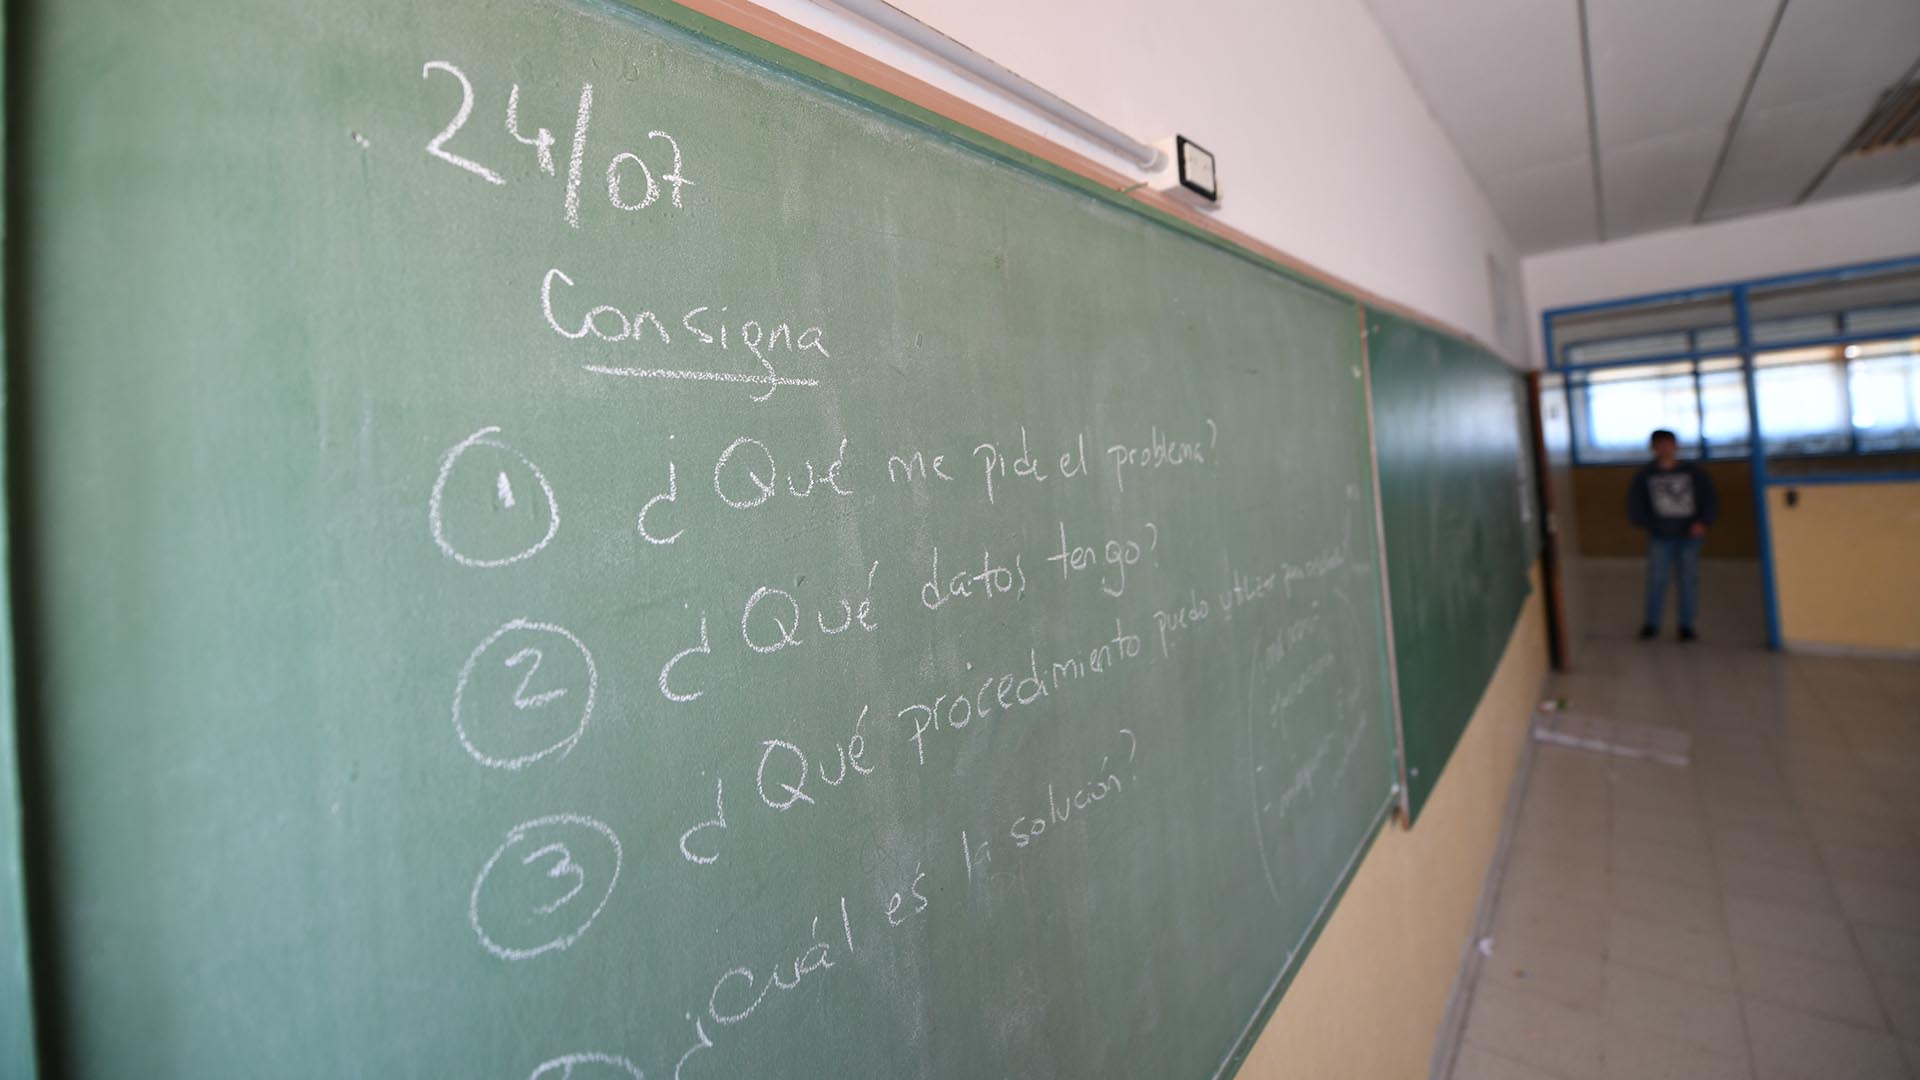 24/07
Consigna
1 ¿Qué me pide el problema?
2 ¿Qué datos tengo?
3 ¿Qué procedimiento puedo utilizar para
¿Cuál es la solución?